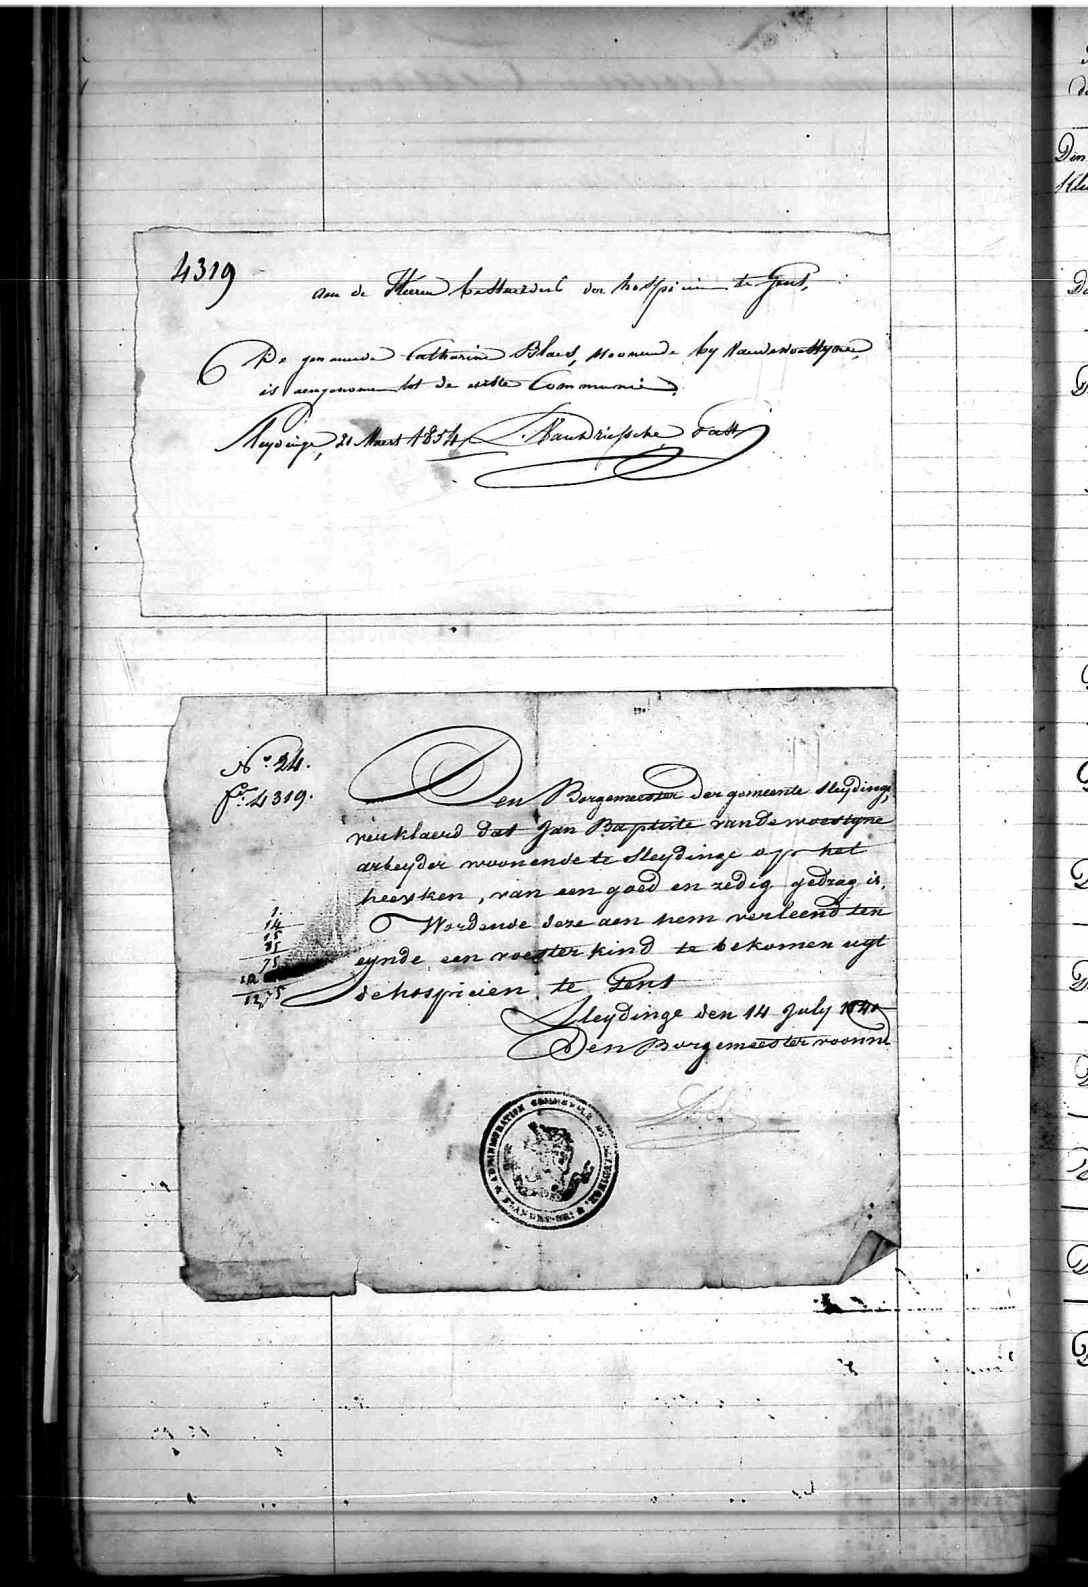 4319
aen de Heeren bestuerders der hospicien te Gent,
De genaemde Catharine Blaes, woonende by Vandewoestyne,
is aengenomen tot de eerste Communie.
Sleydinge, 21 Maert 1854 Vandriessche, Past
N.º 24.
f.º 4319.
Den Borgemeester der gemeente Sleydinge,
verklaerd dat Jan Baptiste vandewoestyne
arbeyder woonende te Sleydinge op het
heesken, van een goed en zedig gedrag is.
Wordende deze aen hem verleend ten
eynde een voesterkind te bekomen uyt
de hospicien te Gent
Sleydinge den 14 July 1841
Den Borgemeester voornd
1
14
15
35
75
12
12,75
ADMINISTRATION COMMUNALE DE SLEYDINGE
FLANDRE-OR: